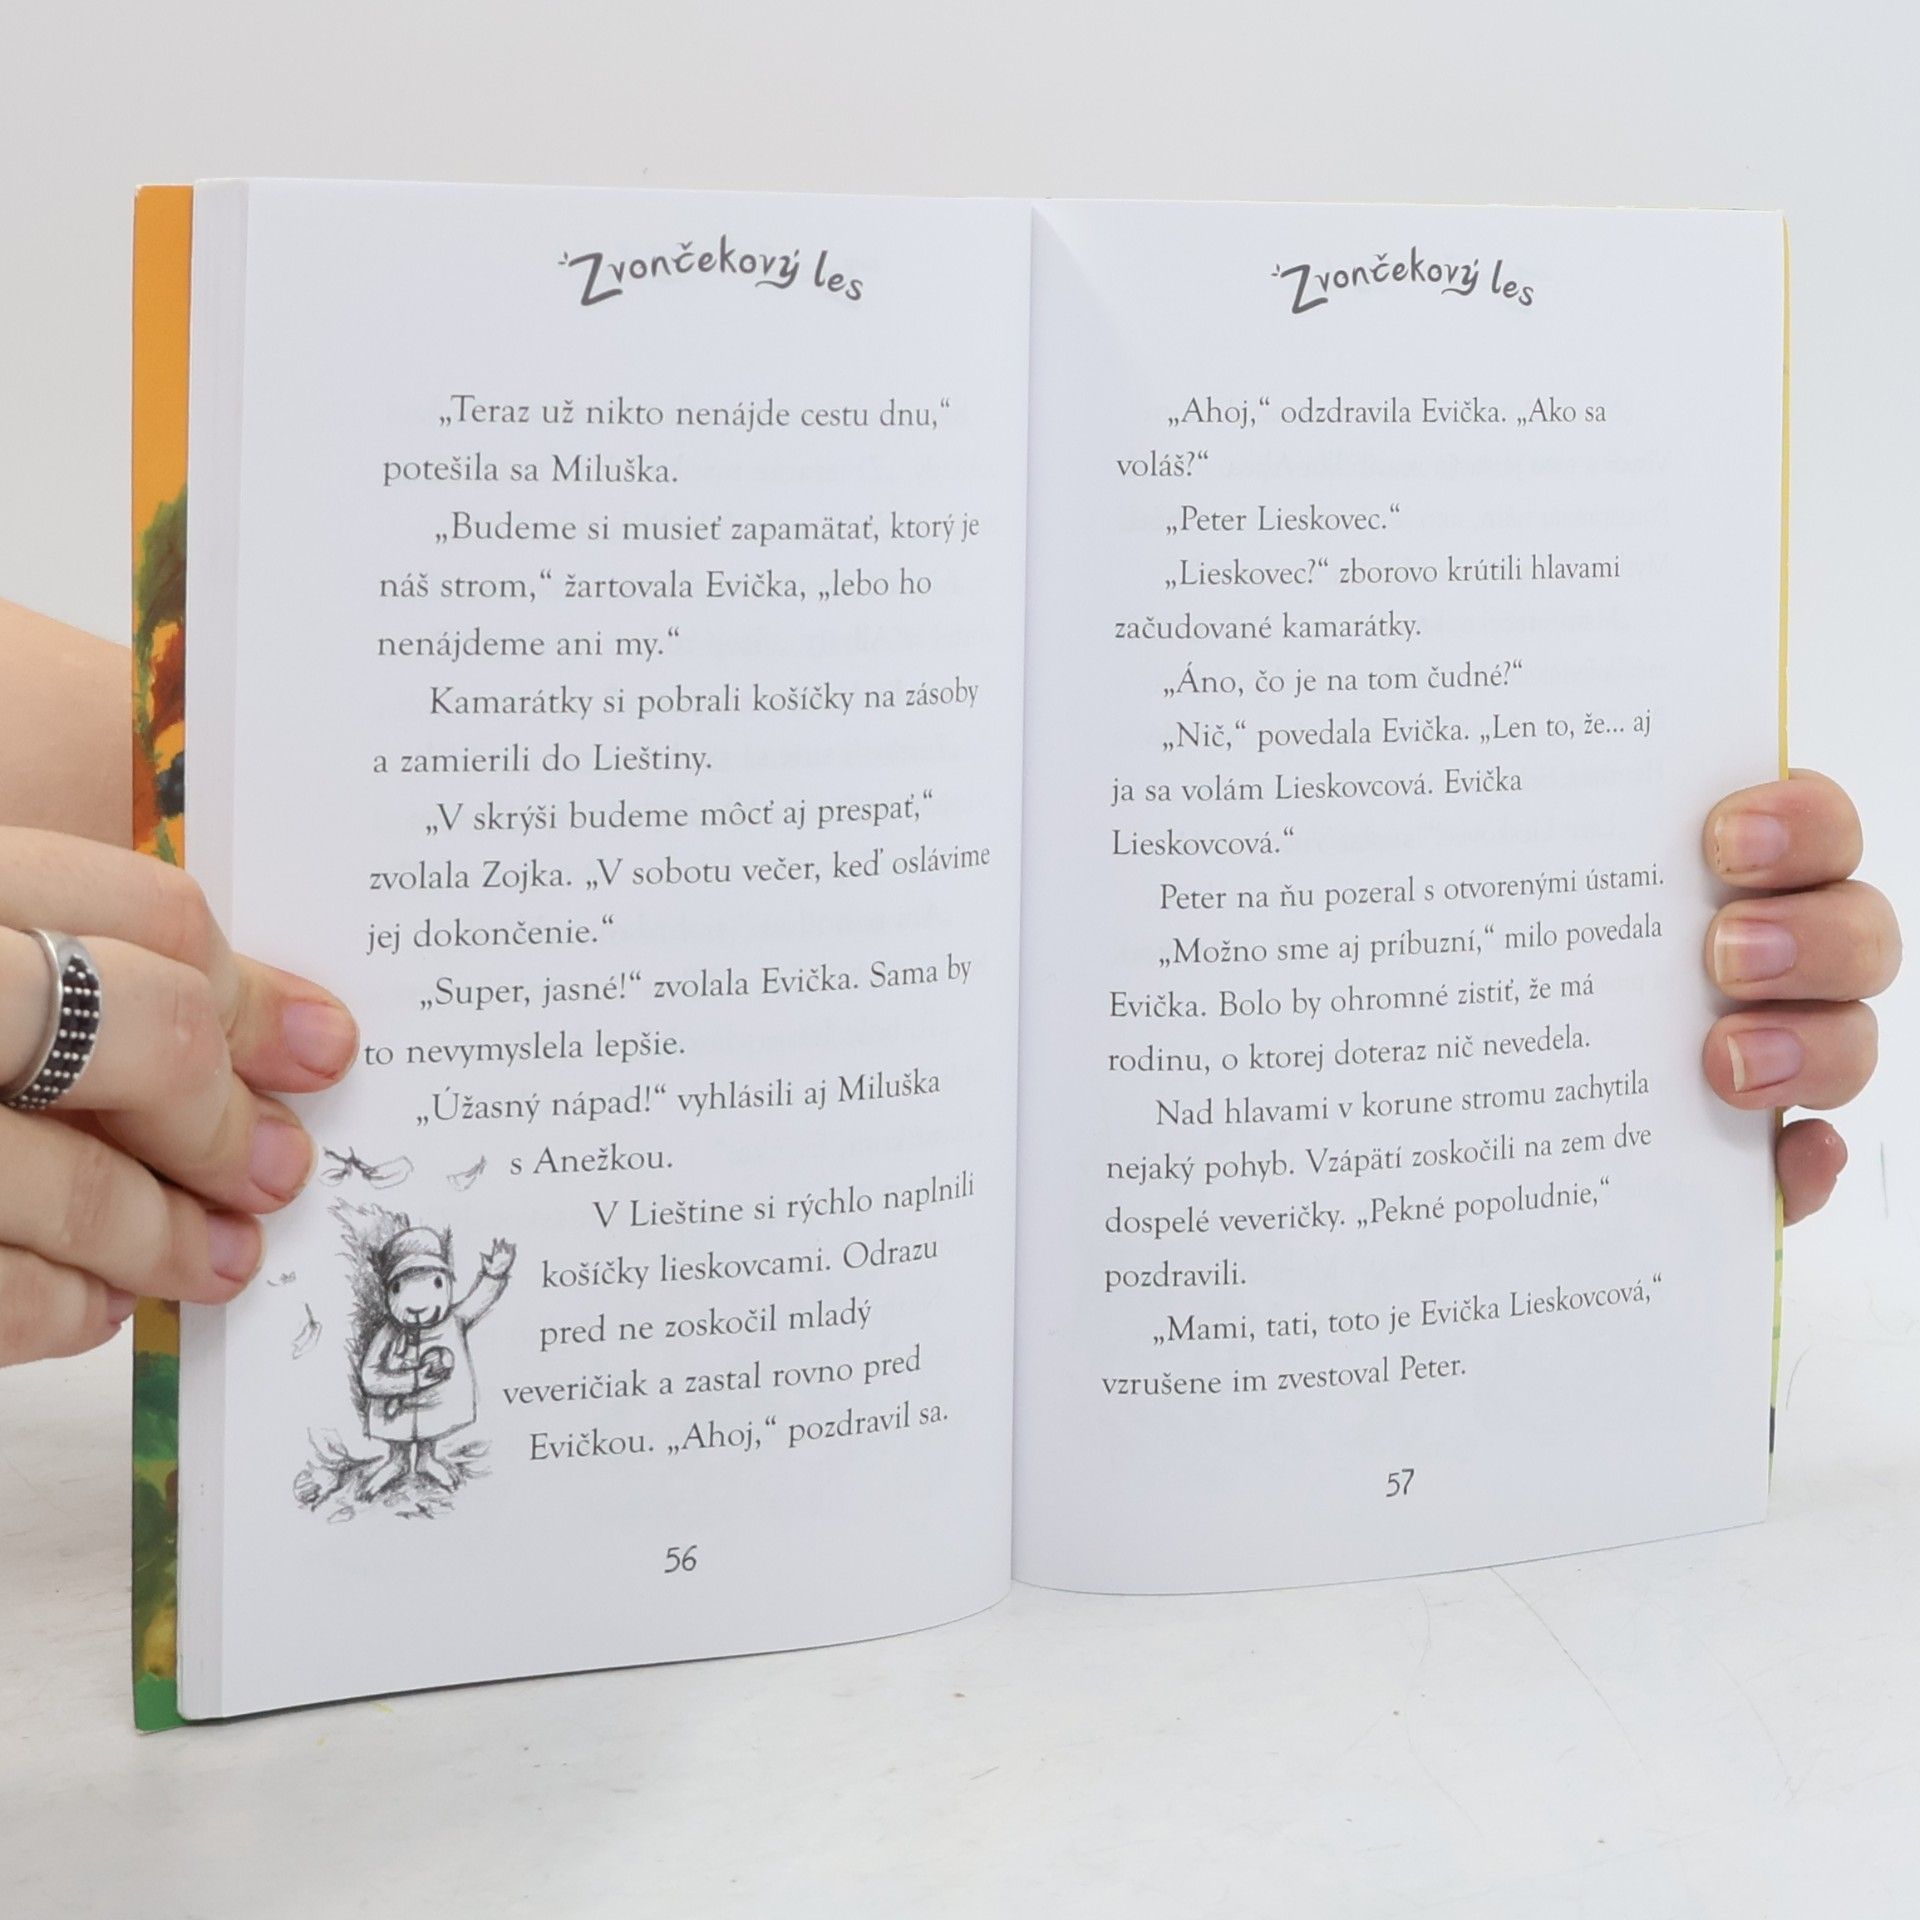 Zvončekový les
„Teraz už nikto nenájde cestu dnu,“
potešila sa Miluška.
„Budeme si musieť zapamätať, ktorý je
náš strom,“ žartovala Evička, „lebo ho
nenájdeme ani my.“
Kamarátky si pobrali košíčky na zásoby
a zamierili do Lieštiny.
„V skrýši budeme môcť aj prespať,“
zvolala Zojka. „V sobotu večer, keď oslávime
jej dokončenie.“
„Super, jasné!“ zvolala Evička. Sama by
to nevymyslela lepšie.
„Úžasný nápad!“ vyhlásili aj Miluška
s Anežkou.
V Lieštine si rýchlo naplnili
košíčky lieskovcami. Odrazu
pred ne zoskočil mladý
veveričiak a zastal rovno pred
Evičkou. „Ahoj,“ pozdravil sa.
56
Zvončekový les
„Ahoj,“ odzdravila Evička. „Ako sa
voláš?“
„Peter Lieskovec.“
„Lieskovec?“ zborovo krútili hlavami
začudované kamarátky.
„Áno, čo je na tom čudné?“
„Nič,“ povedala Evička. „Len to, že... aj
ja sa volám Lieskovcová. Evička
Lieskovcová.“
Peter na ňu pozeral s otvorenými ústami.
„Možno sme aj príbuzní,“ milo povedala
Evička. Bolo by ohromné zistiť, že má
rodinu, o ktorej doteraz nič nevedela.
Nad hlavami v korune stromu zachytila
nejaký pohyb. Vzápätí zoskočili na zem dve
dospelé veveričky. „Pekné popoludnie,“
pozdravili.
„Mami, tati, toto je Evička Lieskovcová,“
vzrušene im zvestoval Peter.
57